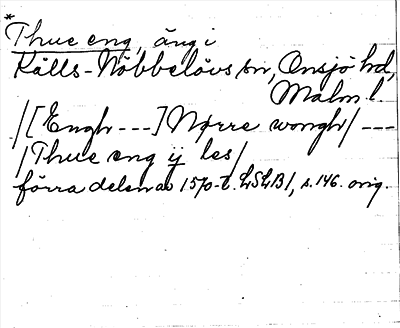 *
Thue eng, äng i
Källs-Nöbbelövs sn, Onsjö hd,
Malm. l.
/[Engh ---] Nørre wongh/ ---
/Thue eng ij les/
förra delen av 1570-t. LSLB1, s. 146. orig.